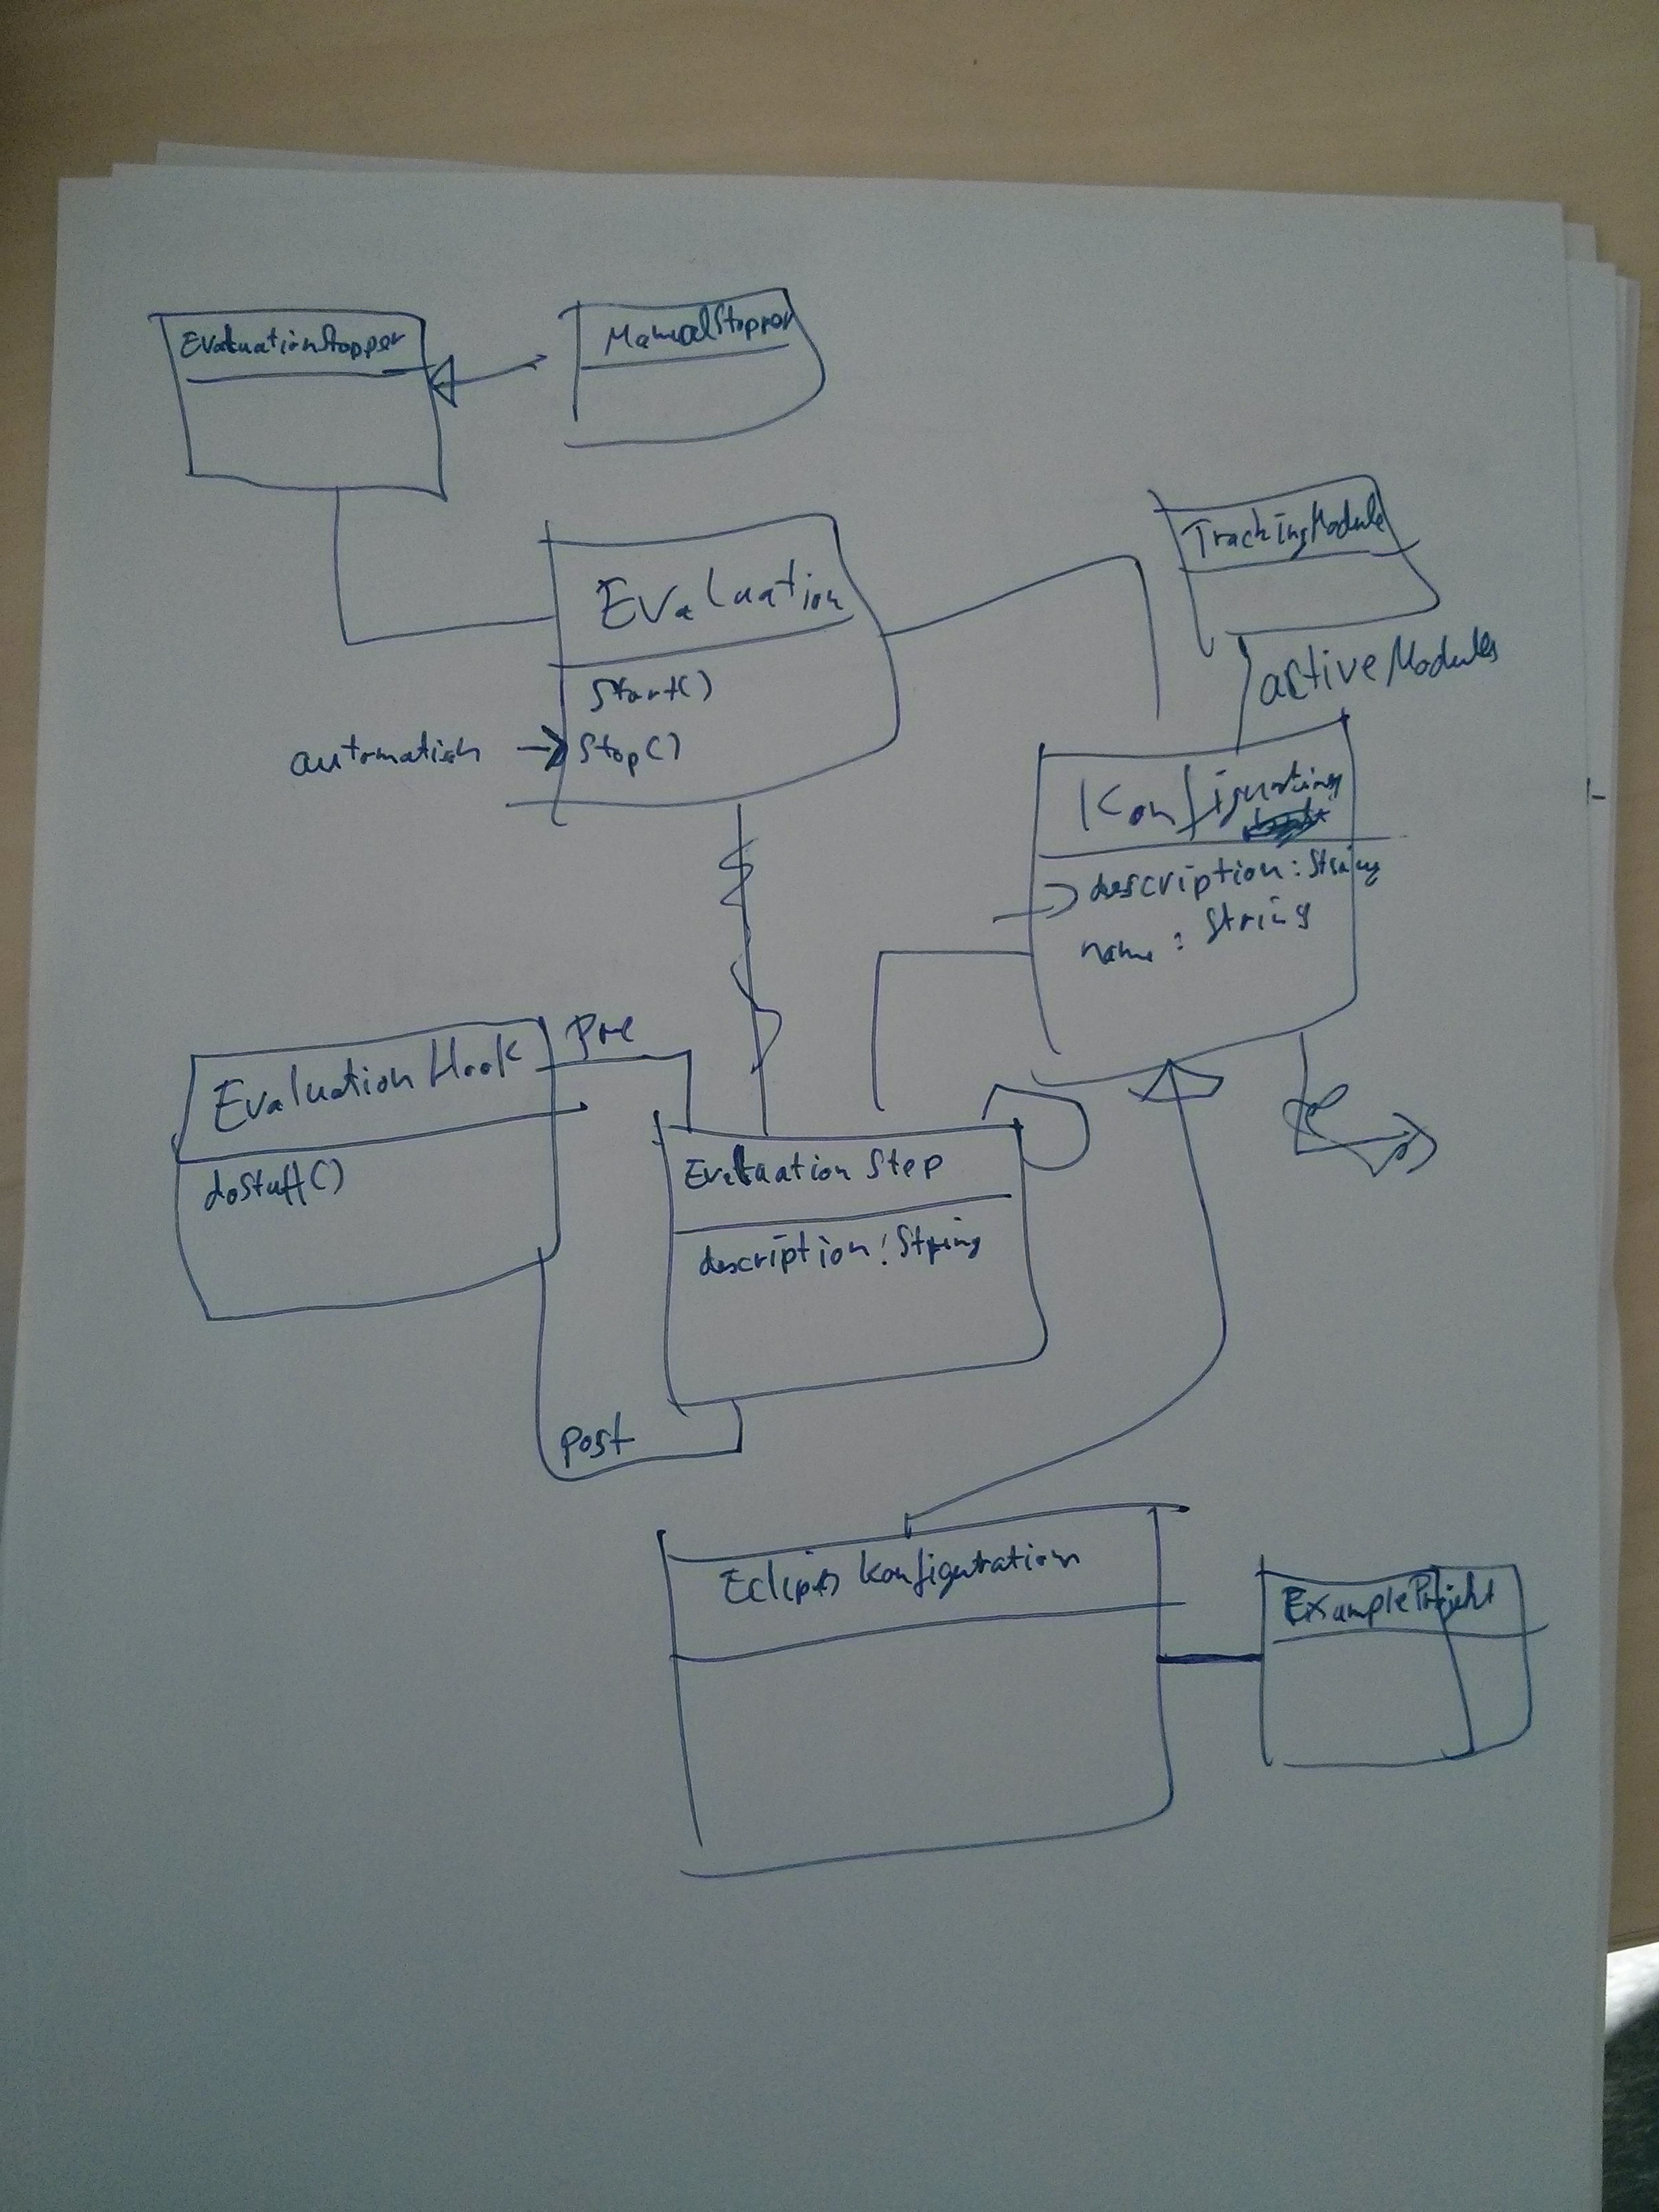 EvaluationStopper
ManualStopper
TrackingModule
activeModules
Evaluation
Start()
automatisch → Stop()
Konfiguration
description: String
name: String
Pre
Evaluation Hook
doStuff()
Evaluation Step
description: String
post
Konfiguration
ExampleProjekt